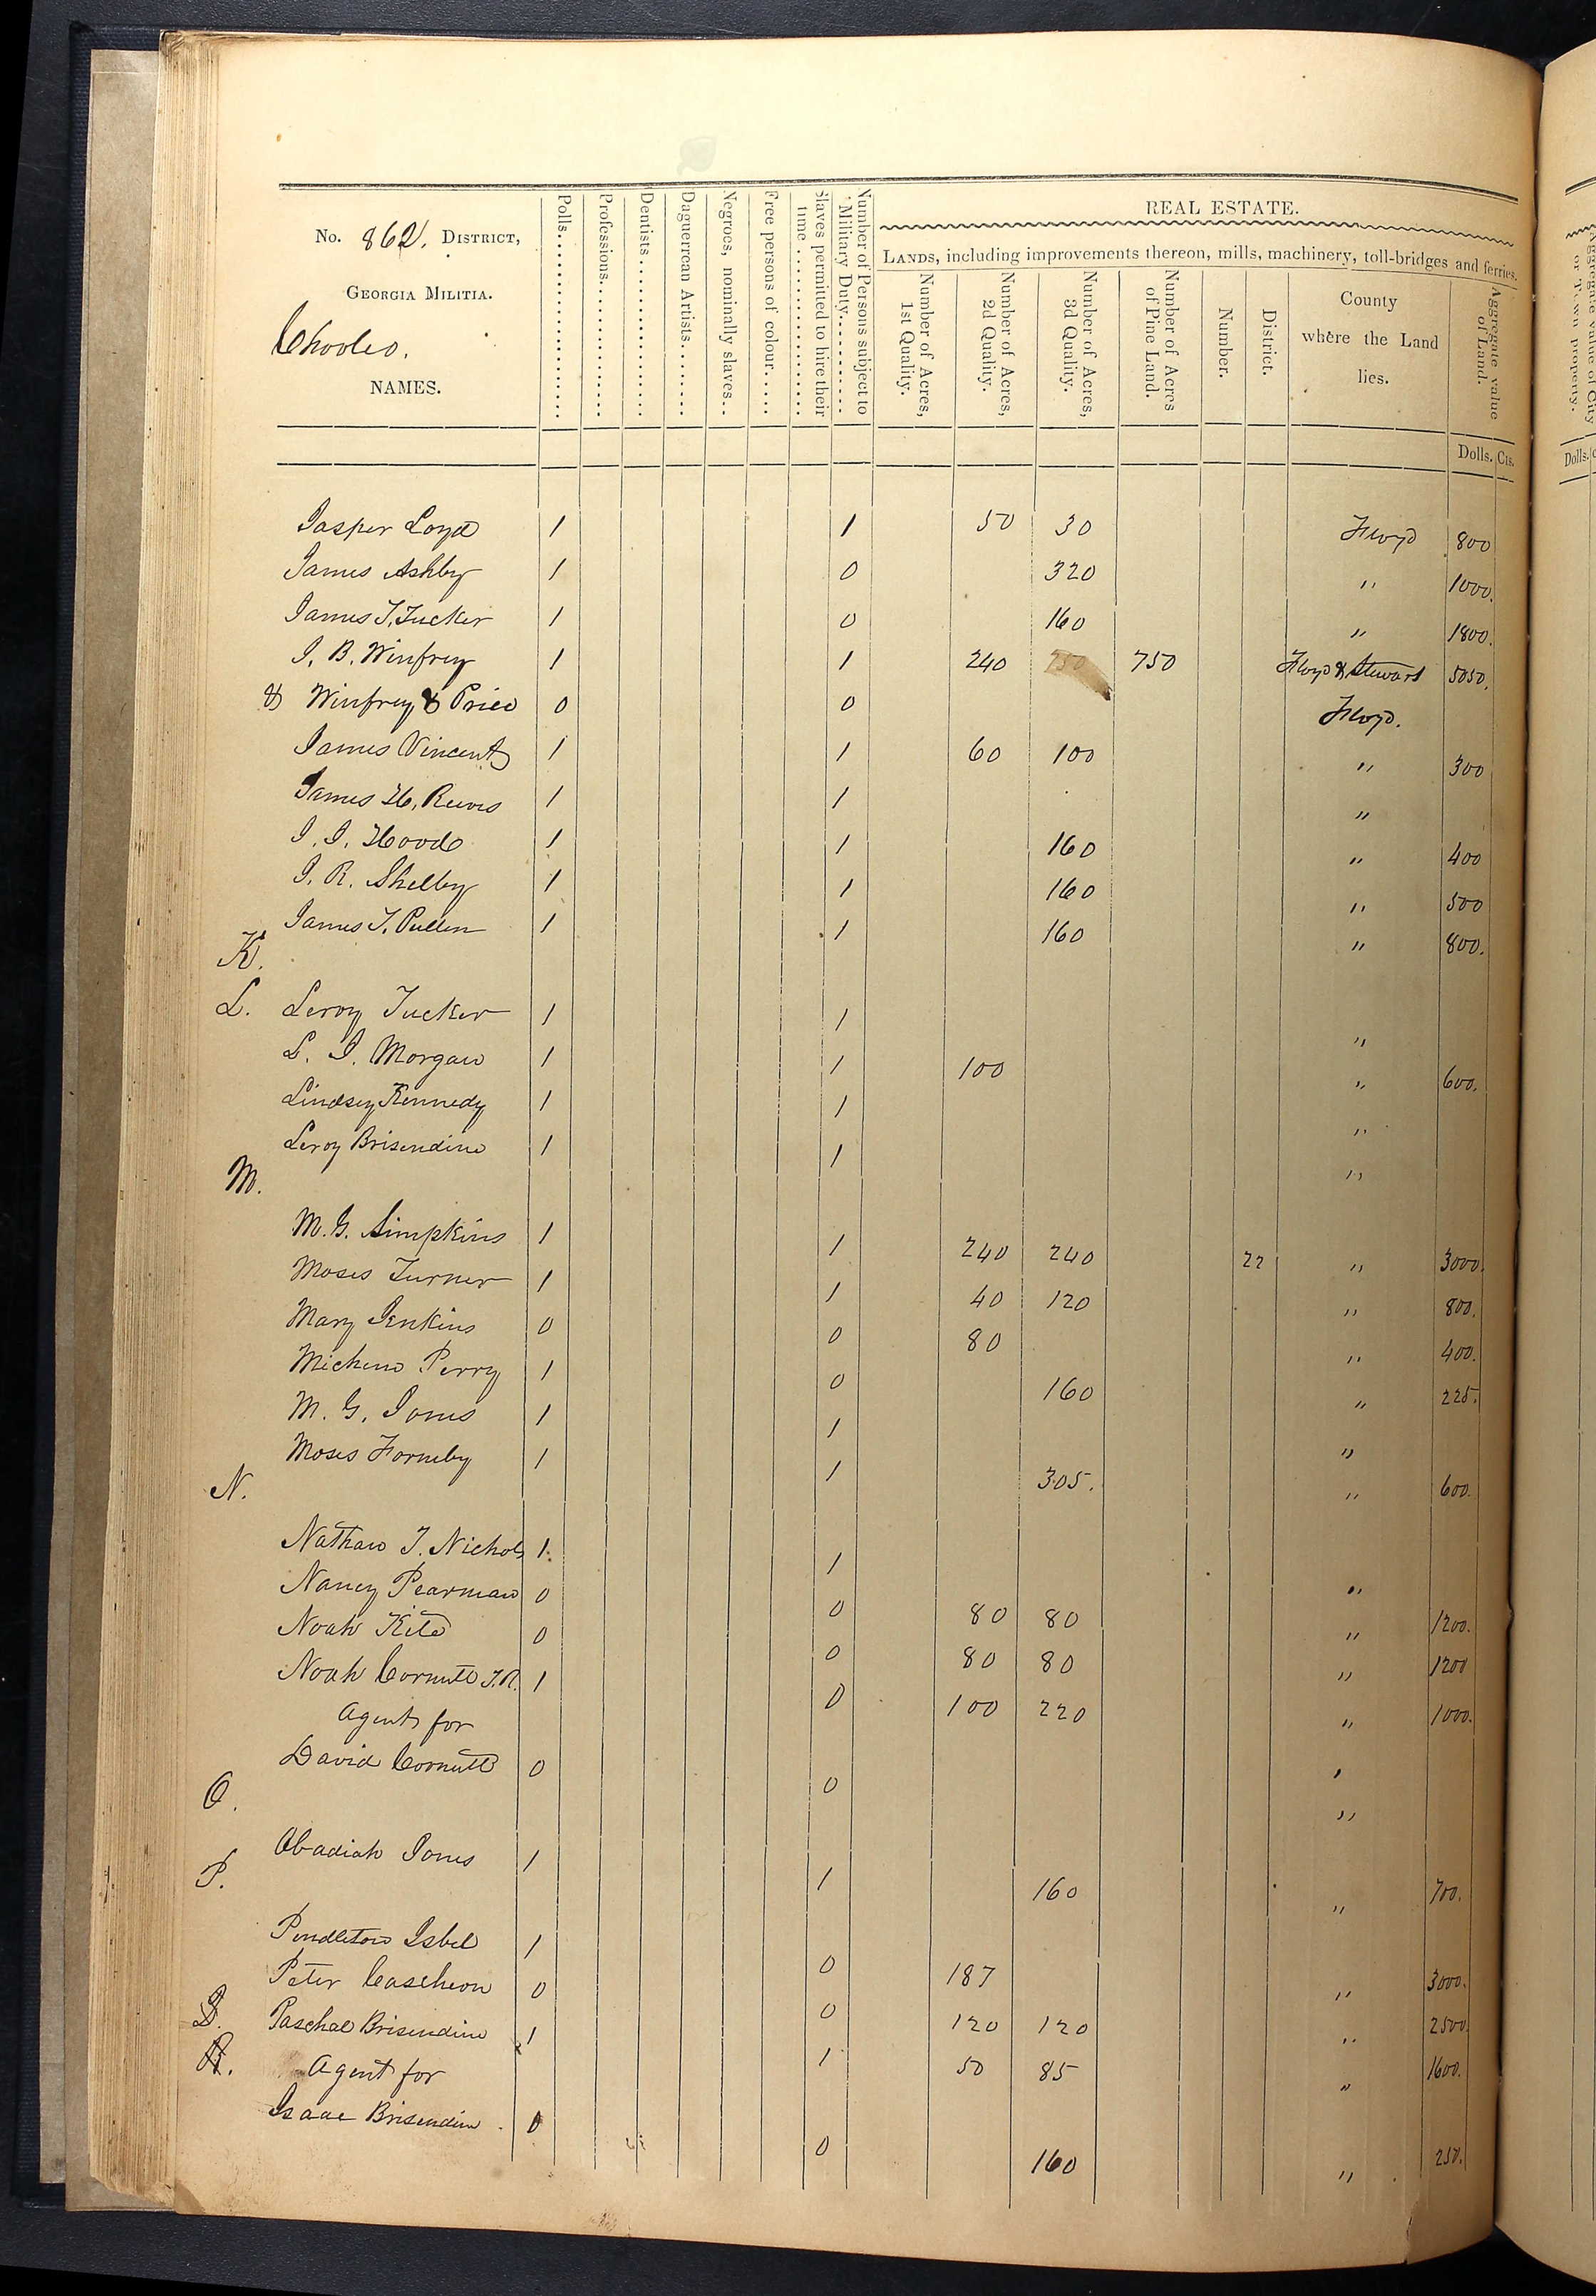 No. 862. DISTRICT,
GEORGIA MILITIA.
Chooleo.
NAMES.
Polls
Professions
Dentists
Daguerrean Artists
Negroes, nominally slaves
Free persons of colour
Slaves permitted to hire their time
Number of Persons subject to Military Duty
REAL ESTATE.
LANDS, including improvements thereon, mills, machinery, toll-bridges and ferries.
Number of Acres, 1st Quality.
Number of Acres, 2d Quality.
Number of Acres, 3d Quality.
Number of Acres of Pine Land.
Number.
District.
County where the Land lies.
Aggregate value of Land.
Dolls. Cts.
Jasper Loyd 1 1 50 30 Floyd 800
James Ashby 1 0 320 " 1000.
James T. Tucker 1 0 160 " 1800.
J. B. Winfrey 1 1 240 750 750 Floyd & Stewart 5050.
& Winfrey & Price 0 0 Floyd.
James Vincent 1 1 60 100 " 300
James H. Reeves 1 1 "
J. J. Hood 1 1 160 " 400
J. R. Shelby 1 1 160 " 500
James T. Pullen 1 1 160 " 800.
K.
L. Leroy Tucker 1 1 "
L. J. Morgan 1 1 100 " 600.
Lindsey Kennedy 1 1 "
Leroy Brisendine 1 1 "
M.
M. G. Simpkins 1 1 240 240 22 " 3000.
Moses Turner 1 1 40 120 " 800.
Mary Jenkins 0 0 80 " 400.
Perry 1 0 160 " 225.
M. G. Jones 1 1 "
Moses Formby 1 1 305. " 600.
N.
Nathan T. Nichols 1. 1 "
Nancy Pearman 0 0 80 80 " 1200.
Noah Kite 0 0 80 80 " 1200
Noah Cornutt J.R. 1 0 100 220 " 1000.
Agent for "
David Cornutt 0 0 "
O.
Obadiah Jones 1 1 160 " 700.
P.
Pendleton Isbel 1 0 187 " 3000.
Peter 0 0 120 120 " 2500.
Paschal Brisendine 1 1 50 85 " 1600.
R. Agent for
Isaac Brisendine 0 0 160 " 250.
Aggregate value of City or Town property.
Dolls.